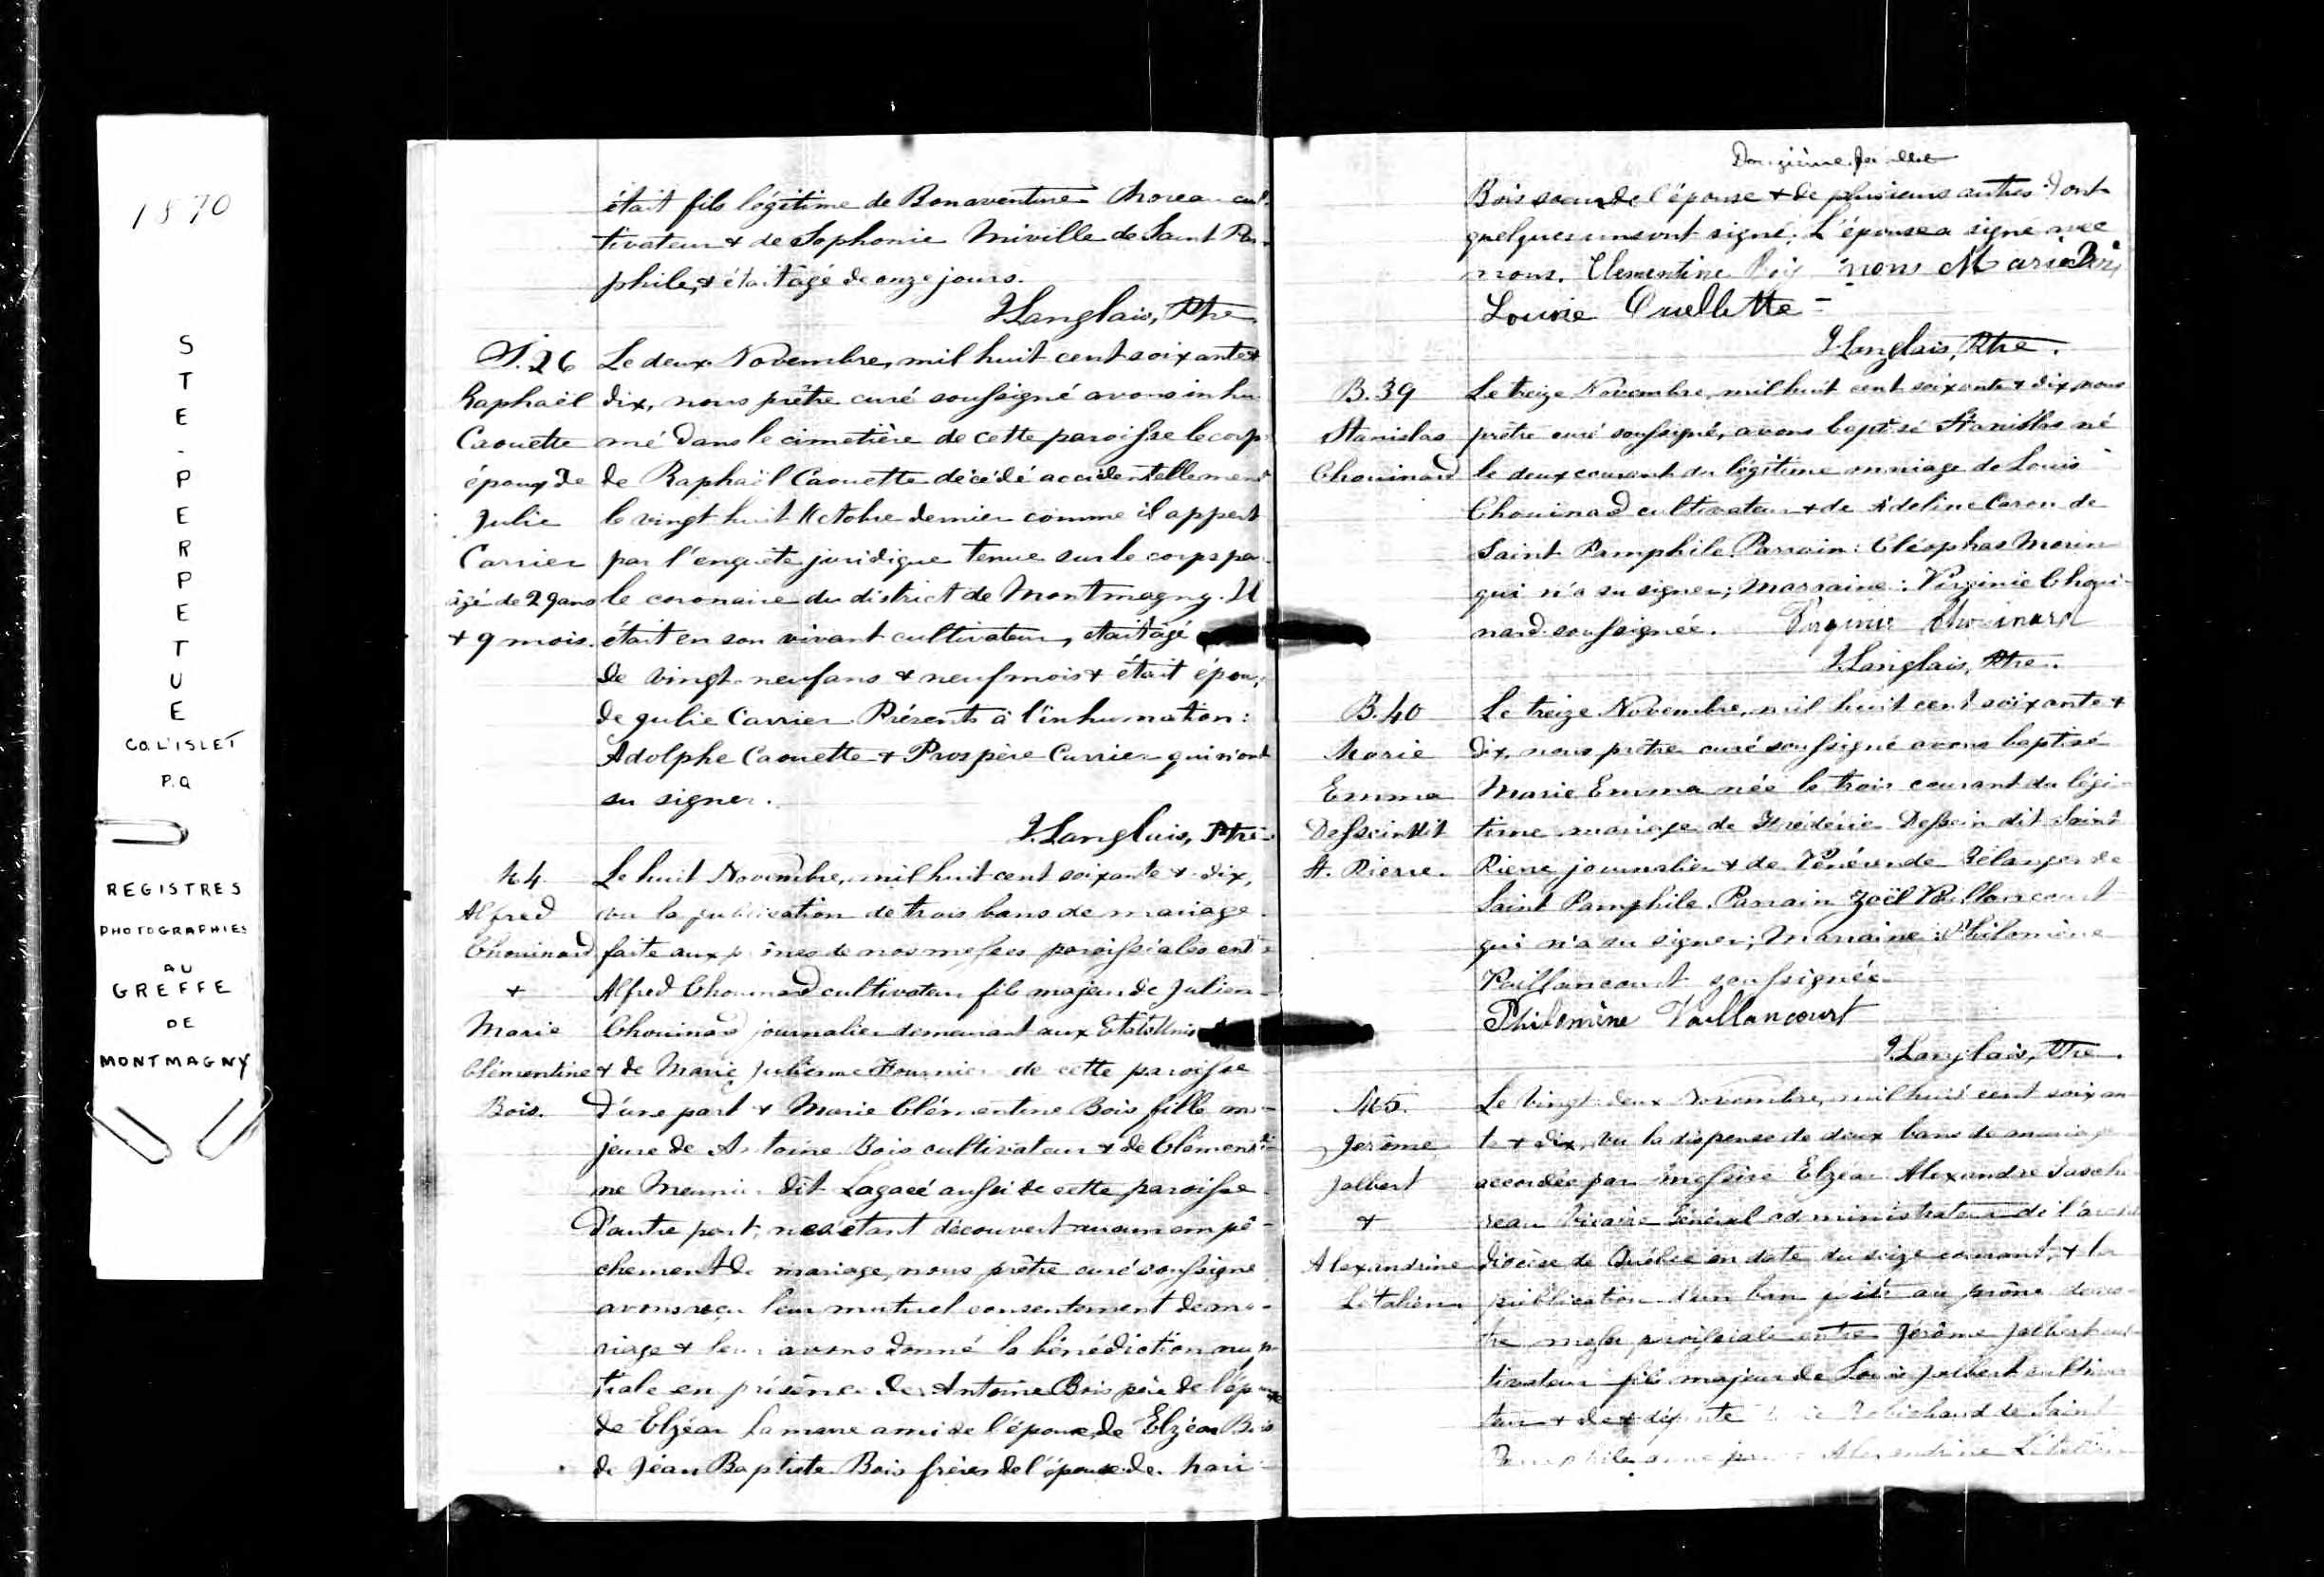 1870
STE-PERPETUE
CO. L'ISLET
P.Q
REGISTRES
PHOTOGRAPHIES
AU
GREFFE
DE
MONTMAGNY
était fils légitime de Bonaventure Moreau cul-
tivateur & de Sophonie Miville de Saint Pam-
phile, & était âgé de onze jours.
J. Langlais, Ptre
S. 26
Raphaël
Caouette
époux de
Julie
Carrier
âgé de 29 ans
& 9 mois.
Le deux Novembre, mil huit cent soixante &
dix, nous prêtre curé soussigné avons inhu-
mé dans le cimetière de cette paroisse le corps
de Raphaël Caouette décédé accidentellement
le vingt huit Octobre dernier comme il appert
par l'enquête juridique tenue sur le corps par
le coronaire du district de Montmagny. Il
était en son vivant cultivateur, était âgé
de vingt-neuf ans & neuf mois & était époux
de Julie Carrier. Présents à l'inhumation:
Adolphe Caouette & Prospère Carrier qui n'ont
su signer.
J. Langlais, Ptre
M. 4.
Alfred
Chouinard
&
Marie
Clémentine
Bois.
Le huit Novembre, mil huit cent soixante & dix,
vu la publication de trois bans de mariage
faite aux prônes de nos messes paroissiales entre
Alfred Chouinard cultivateur fils majeur de Julien
Chouinard journalier demeurant aux Etats Unis
& de Marie Julienne Fournier de cette paroisse
d'une part & Marie Clémentine Bois fille ma-
jeure de Antoine Bois cultivateur & de Clementi-
ne Meunier dit Lagacé aussi de cette paroisse
d'autre part, ne s'étant découvert aucun empê-
chement de mariage, nous prêtre curé soussigné
avons reçu leur mutuel consentement de ma-
riage & leur avons donné la bénédiction nup-
tiale en présence de Antoine Bois père de l'épouse
de Elzéar Lamarre ami de l'époux, de Elzéar Bois
de Jean Baptiste Bois frères de l'épouse de Marie
Douzième feuillet
Bois soeur de l'épouse & de plusieurs autres dont
quelques uns ont signé. L'épouse a signé avec
nous. Clementine Bois nous Marie Bois
Louise Ouellette
J. Langlais, Ptre.
B. 39
Stanislas
Chouinard
Le treize Novembre, mil huit cent soixante & dix nous
prêtre curé soussigné, avons baptisé Stanislas né
le deux courant du légitime mariage de Louis
Chouinard cultivateur & de Adeline Caron de
Saint Pamphile. Parrain: Cléophas Morin
qui n'a su signer; Marraine: Virginie Choui-
nard soussignée. Virginie Chouinard
J. Langlais, Ptre.
B. 40
Marie
Emma
Dessein dit
St. Pierre.
Le treize Novembre, mil huit cent soixante &
dix, nous prêtre curé soussigné avons baptisé
Marie Emma née le trois courant du légi-
time mariage de Frédéric Dessein dit Saint
Pierre journalier & de Vénérende Bélanger de
Saint Pamphile. Parrain Zoël Vaillancourt
qui n'a su signer; Marraine: Philomène
Vaillancourt soussignée
Philomène Vaillancourt
J. Langlais, Ptre.
M 5.
Jerôme
Jalbert
&
Alexandrine
Litalien
Le vingt-deux Novembre, mil huit cent soixan-
te & dix, vu la dispense de deux bans de mariage
accordée par messire Elzéar Alexandre Tasche-
reau Vicaire Général administrateur de l'archi-
diocèse de Québec en date du seize courant, & la
publication d'un ban faite au prône de no-
tre messe paroissiale entre Jérôme Jalbert cul-
tivateur fils majeur de Louis Jalbert cultiva-
teur & de défunte Robichaud de Saint
Pamphile d'une part & Alexandrine Litalien